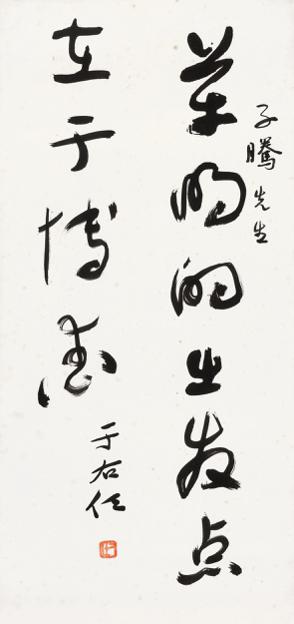 子騰先生
革命的出发点
在于博爱
于右任